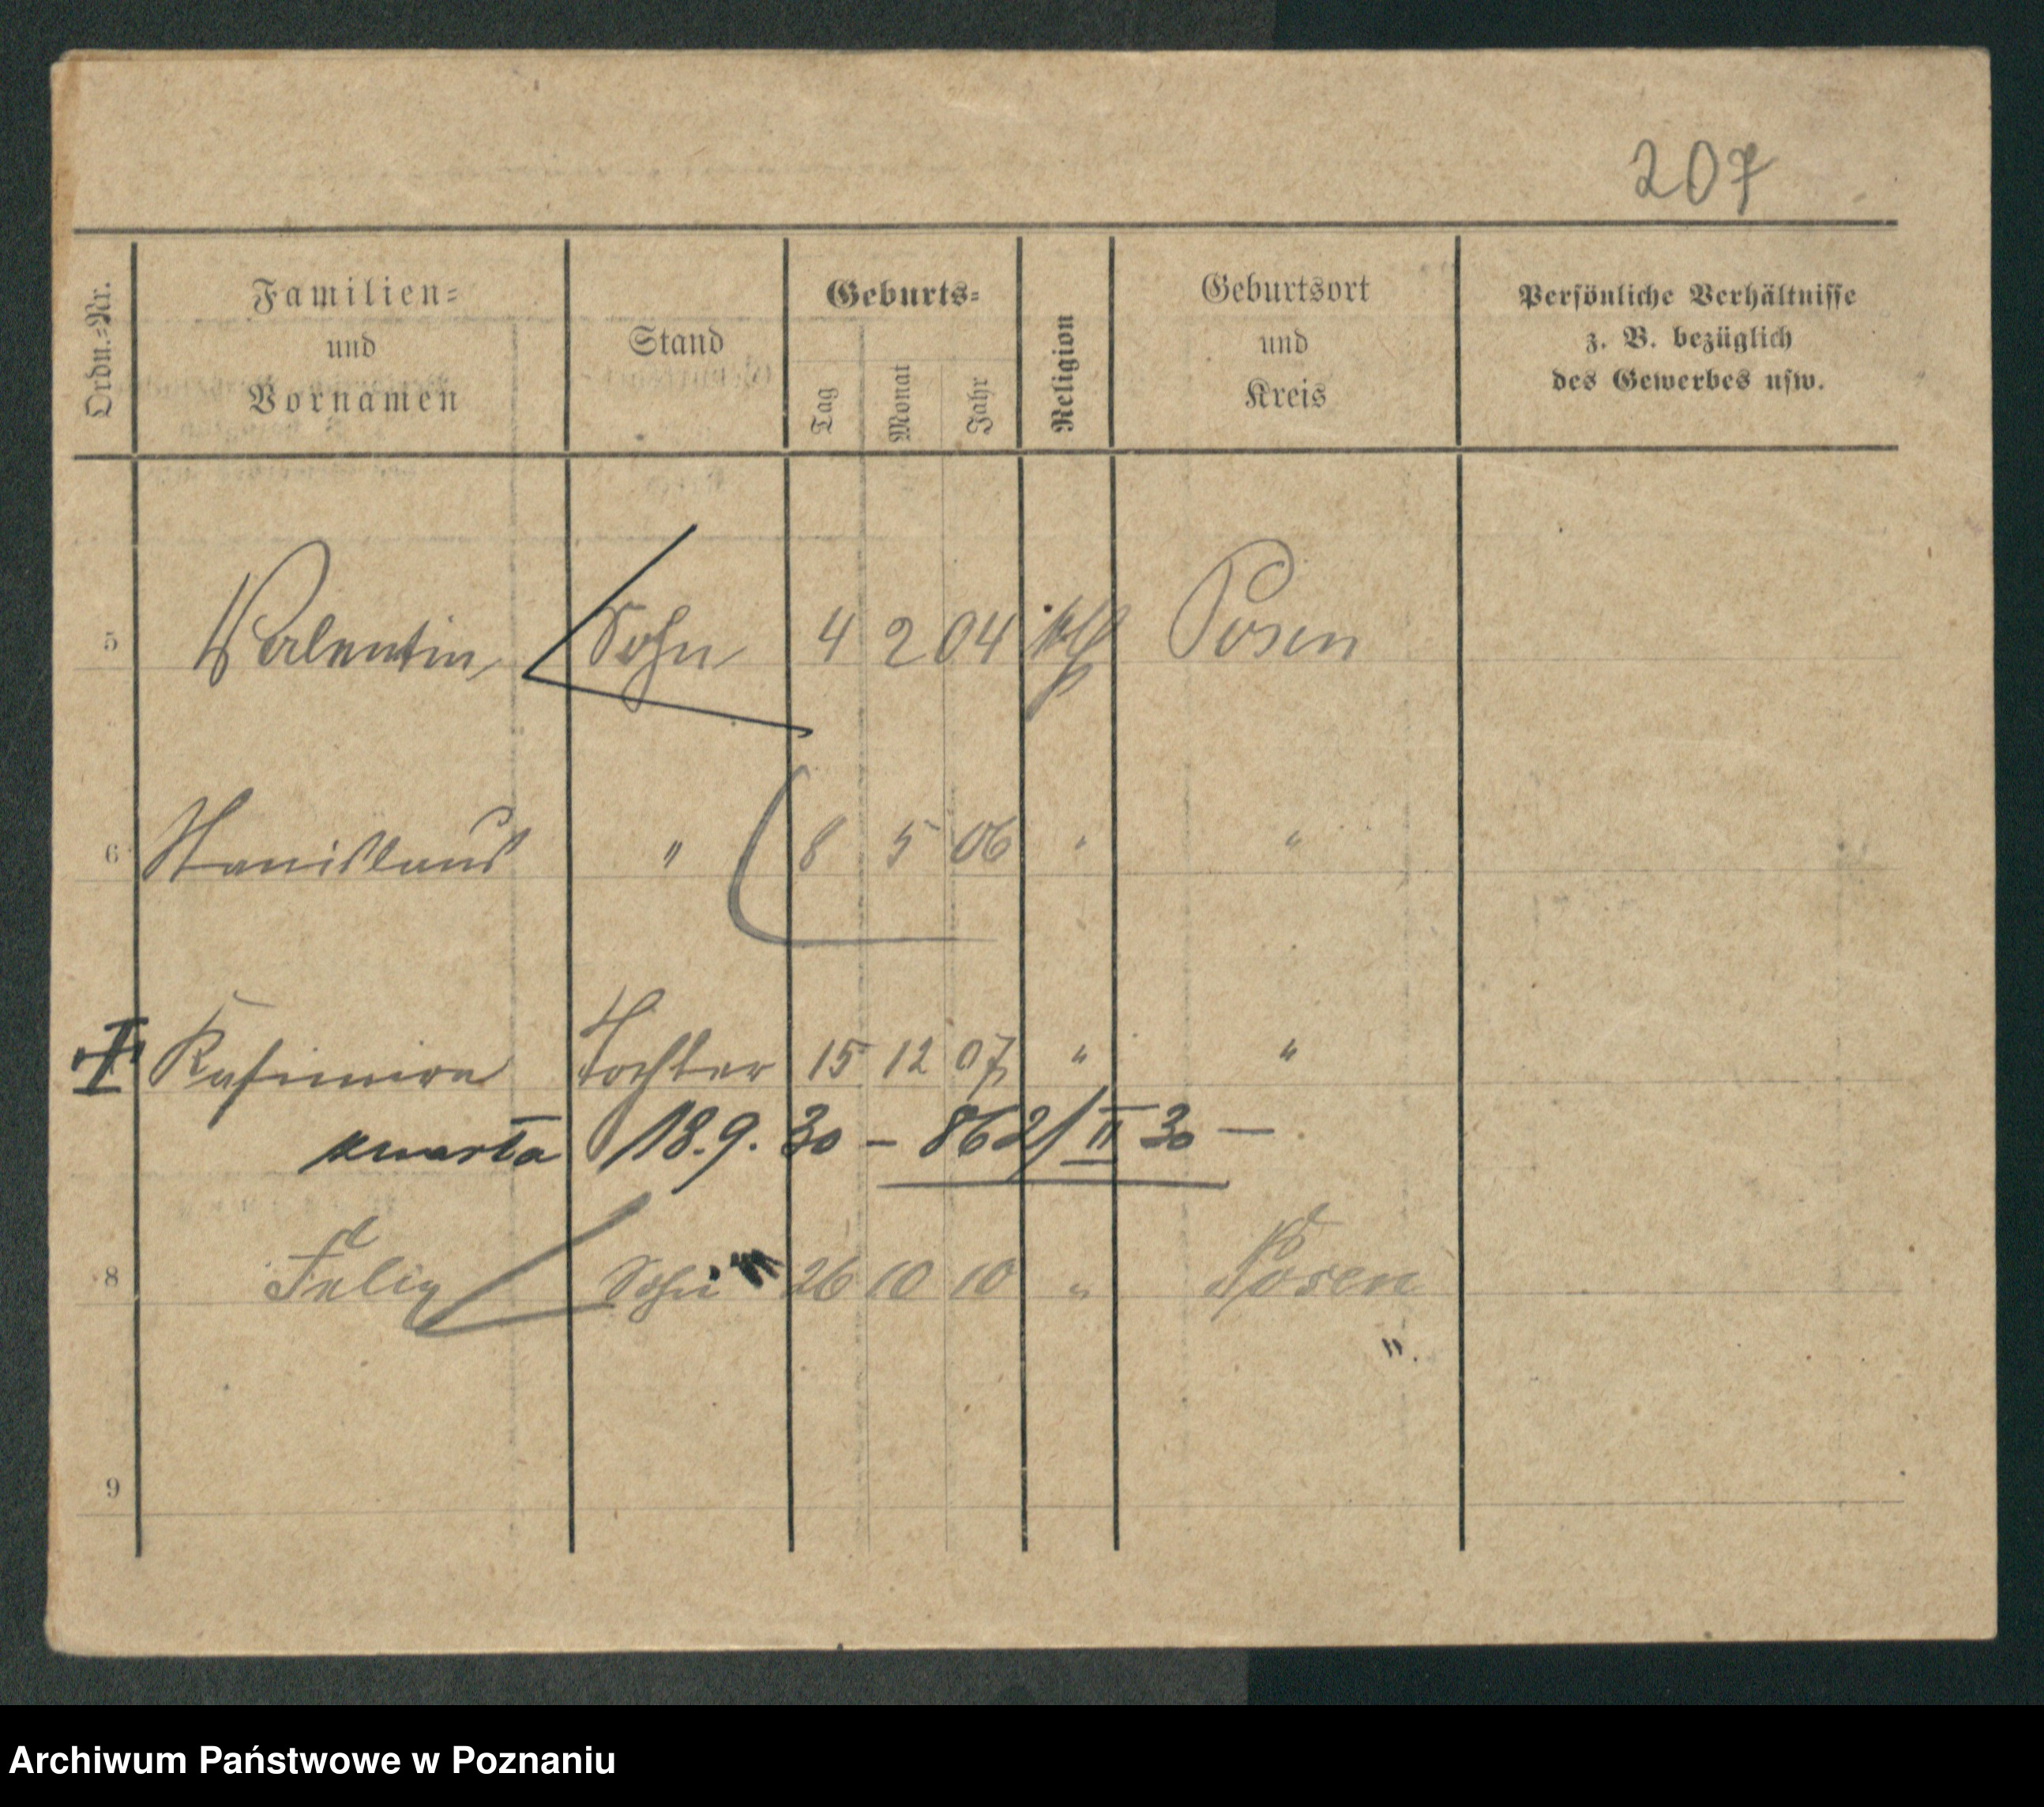 207
Ordn.-Nr. Familien- und Vornamen Stand Geburts- Tag Monat Jahr Religion Geburtsort und Kreis Persönliche Verhältnisse z. B. bezüglich des Gewerbes usw.
5 Valentin Sohn 4 2 04 kth Posen
6 Stanislaus " 8 5 06 " "
Kasimira Tochter 15 12 07 " "
zmarła 18.9.30 – 862/II 30 –
8 Felix Sohn " 26 10 10 " Posen
".
9
Archiwum Państwowe w Poznaniu